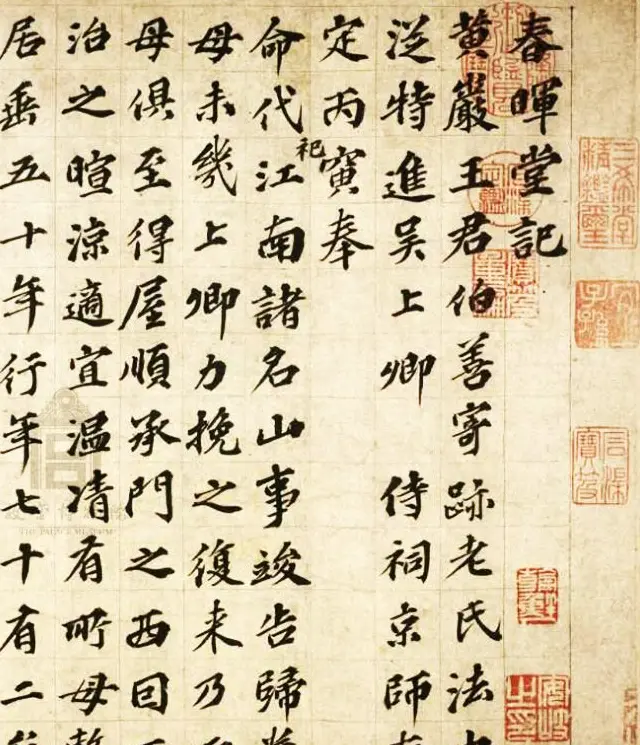 春暉堂記
黄嚴王君伯善寄跡老氏法
從特進吴上卿 侍祠京師
定丙寅奉
命代祀江南諸名山事竣告歸
母未幾上卿力挽之復来乃
母俱至得屋順承門之西回
治之暄涼適宜温凊有所母
居垂五十年行年七十有二